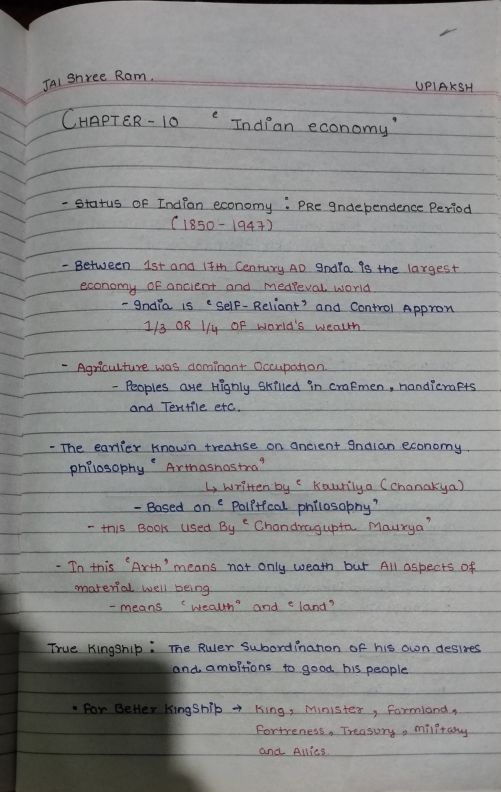 JAI Shree Ram.
UPLAKSH
CHAPTER-10 " Indian economy"
- Status of Indian economy : PRE Independence Period
(1850-1947)
- Between 1st and 17th Century AD India is the largest
economy of ancient and Medieval world
- India is "Self-Reliant" and Control Approx
1/3 OR 1/4 OF world's wealth
- Agriculture was dominant Occupation
- Peoples are Highly Skilled in crafmen, handicrafts
and Textile etc.
- The earlier known treatise on ancient Indian economy
philosophy "Arthashastra"
↳ written by "Kautilya (Chanakya)
- Based on "Political philosophy"
- this Book used By "Chandragupta Maurya"
- In this "Arth" means not only weath but All aspects of
material well being
- means "wealth" and "land"
True Kingship : The Ruler Subordination of his own desires
and ambitions to good his people
• For Better Kingship → King, Minister, Farmland,
Fortreness, Treasury, military
and Allies